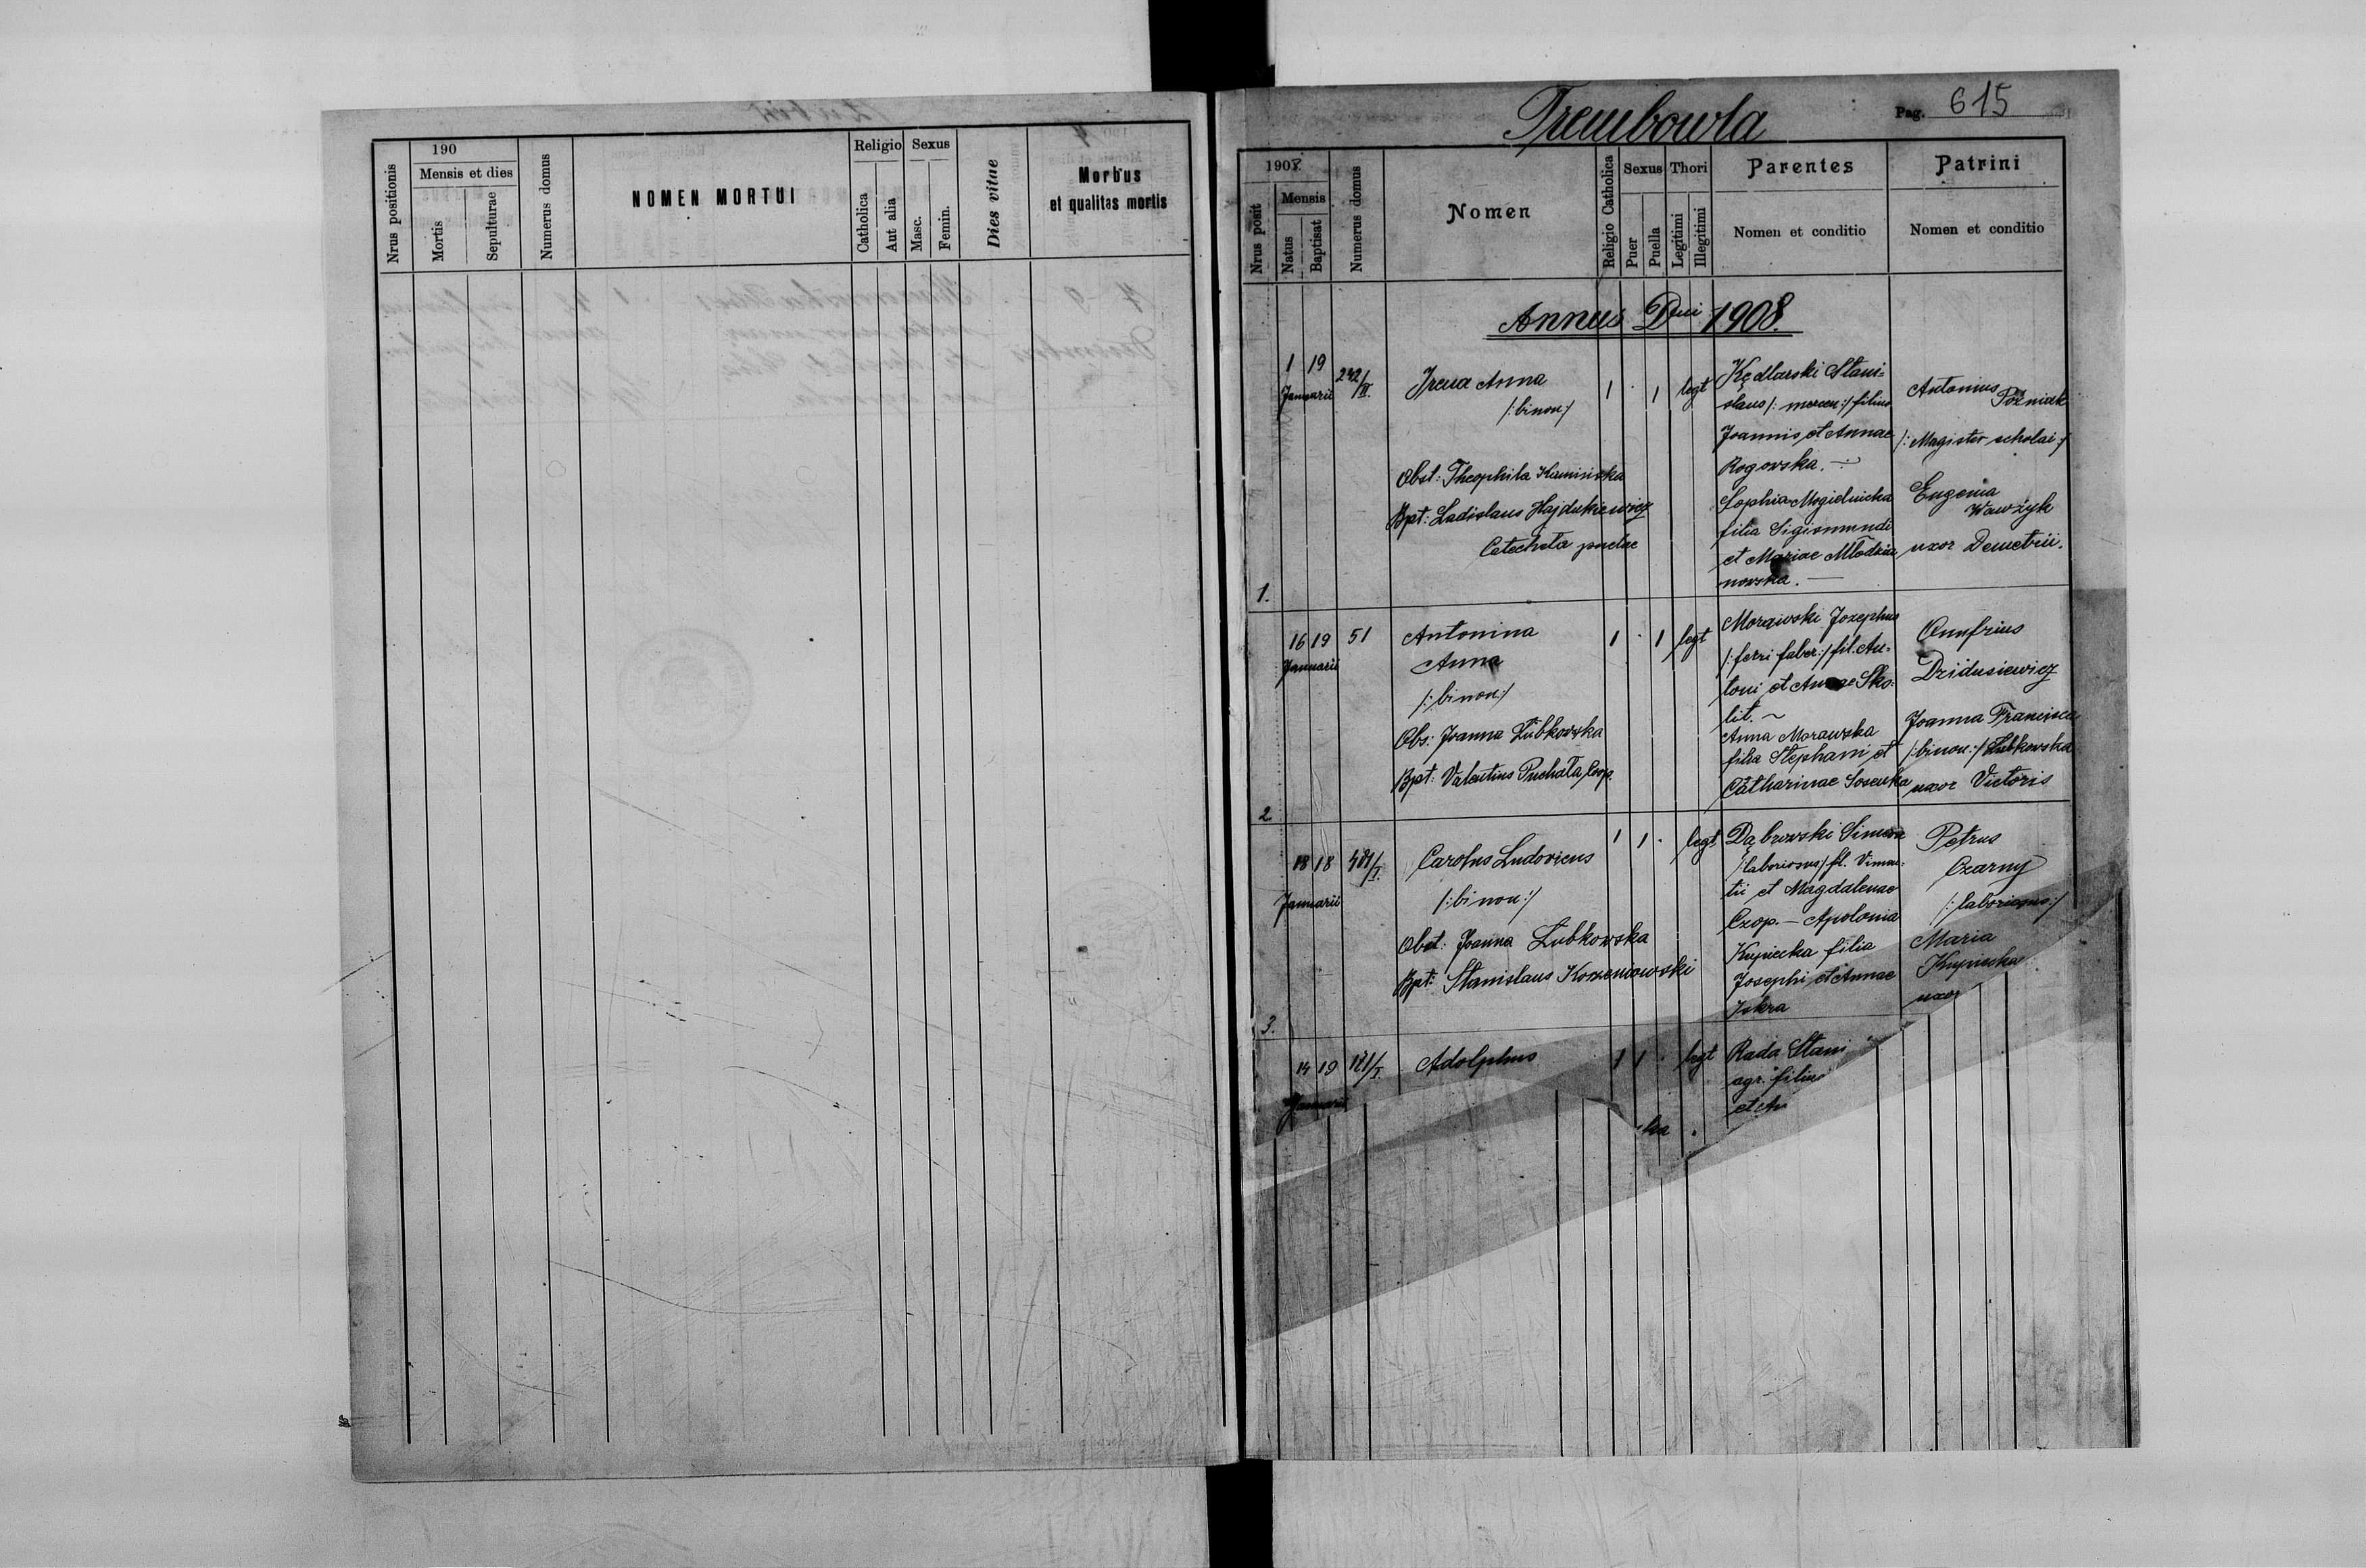 190
Nrus positionis
Mensis et dies
Mortis
Sepulturae
Numerus domus
NOMEN MORTUI
Religio
Catholica
Aut alia
Sexus
Masc.
Femin.
Dies vitae
Morbus
et qualitas mortis
Trembowla
Pag. 615
1908.
Nrus posit
Mensis
Natus
Baptisat
Numerus domus
Nomen
Religio Catholica
Sexus
Puer
Puella
Thori
Legitimi
Illegitimi
Parentes
Nomen et conditio
Patrini
Nomen et conditio
Annus Dni 1908.
1.
1 19
Januarii
242/II.
Irena Anna
/:binon:/
Obst: Theophila Kaminiska
Bpt: Ladislaus Hajdukiewicz
Catecheta puellae
1 · 1 legt
Kędlarski Stani=
slaus /: mercen:/ filius
Joannis et Annae
Rogowska. —
Sophia Mogielnicka
filia Sigismundi
et Mariae Młodzia
nowska. —
Antonius Poźniak
/: Magister scholai:/
Eugenia
Wawżyk
uxor Demetrii.
2
16 19 51
Januarii
Antonina
Anna
/: binon:/
Obs: Joanna Lubkowska
Bpt: Valentius Puchała Coop.
1 · 1 legt
Morawski Josephus
/: ferri faber:/ fil. An=
toni et Annae Sko:
lit. ~
Anna Morawska
filia Stephani et
Catharinae Sosenka
Onufrius
Dzidusiewicz
Joanna Francisca
/:binon:/ Lubkowska
uxor Victoris
3.
18 18
Januarii
Carolus Ludovicus
/: binon:/
Obst: Joanna Lubkowska
Bpt: Stanislaus Korzeniowski
1 1 · legt
Dąbrowski Simeon
/laboriosus/ fl. Vincen=
tii et Magdalenae
Czop. — Apolonia
Kupiecka filia
Josephi et Annae
Iskra
Petrus
Czarny
/: laboriosus:/
Maria
Kupiecka
uxor
14 19 121/I.
Januarii
Adolphus
1 1 · legt
Rada Stani
agr. filius
et An
ka